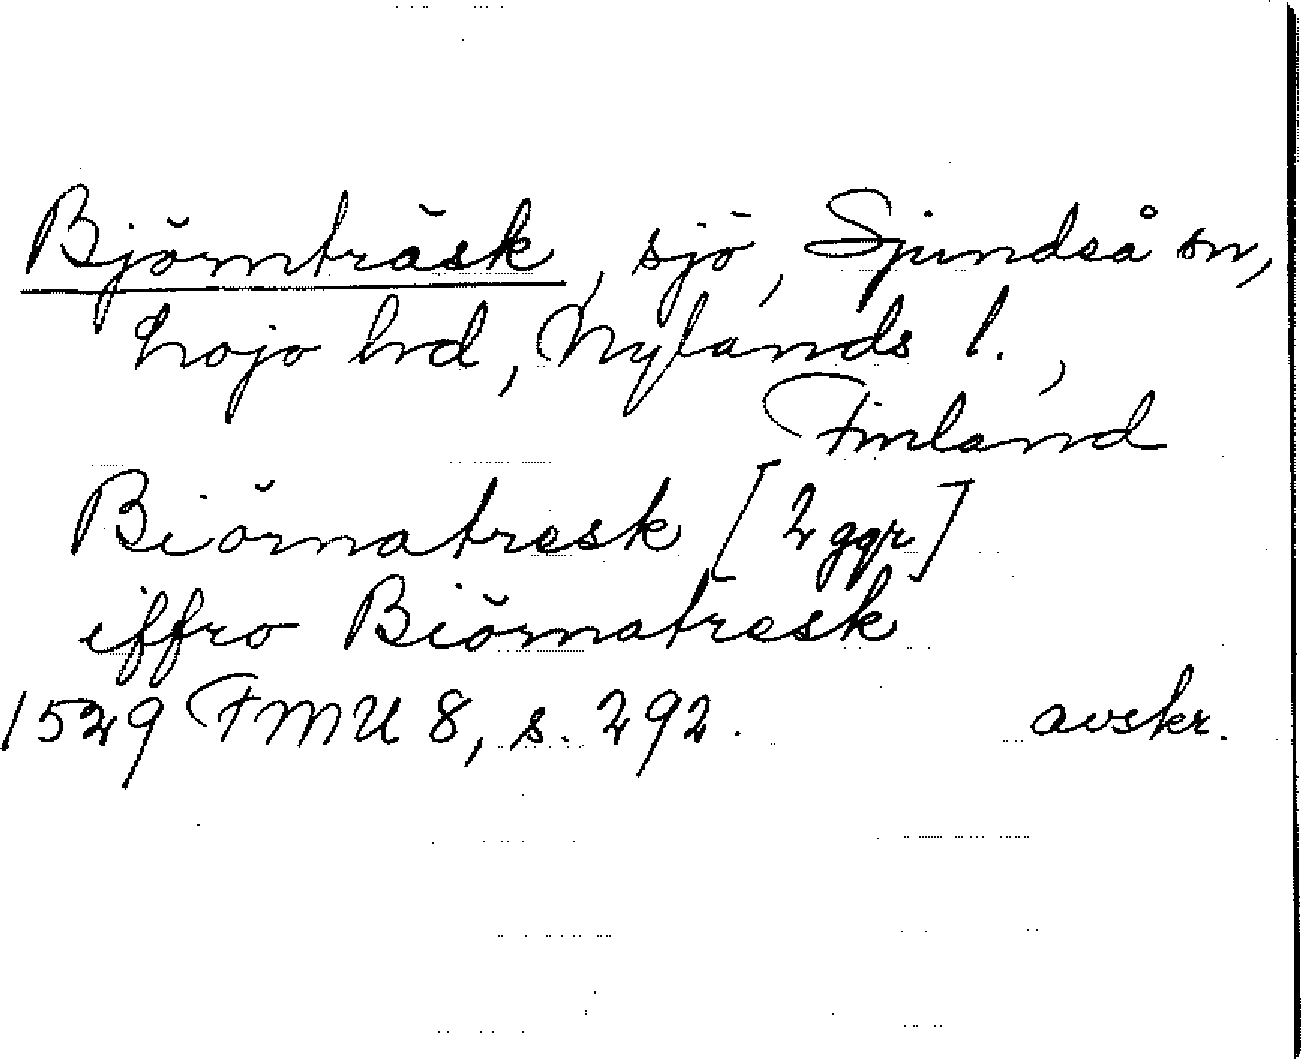 Björnträsk, sjö, Sjundeå sn,
Lojo hd, Nylands l.,
Finland
Biörnatresk [2 ggr]
iffro Biörnatresk
1529 FMU 8, s. 292. avskr.